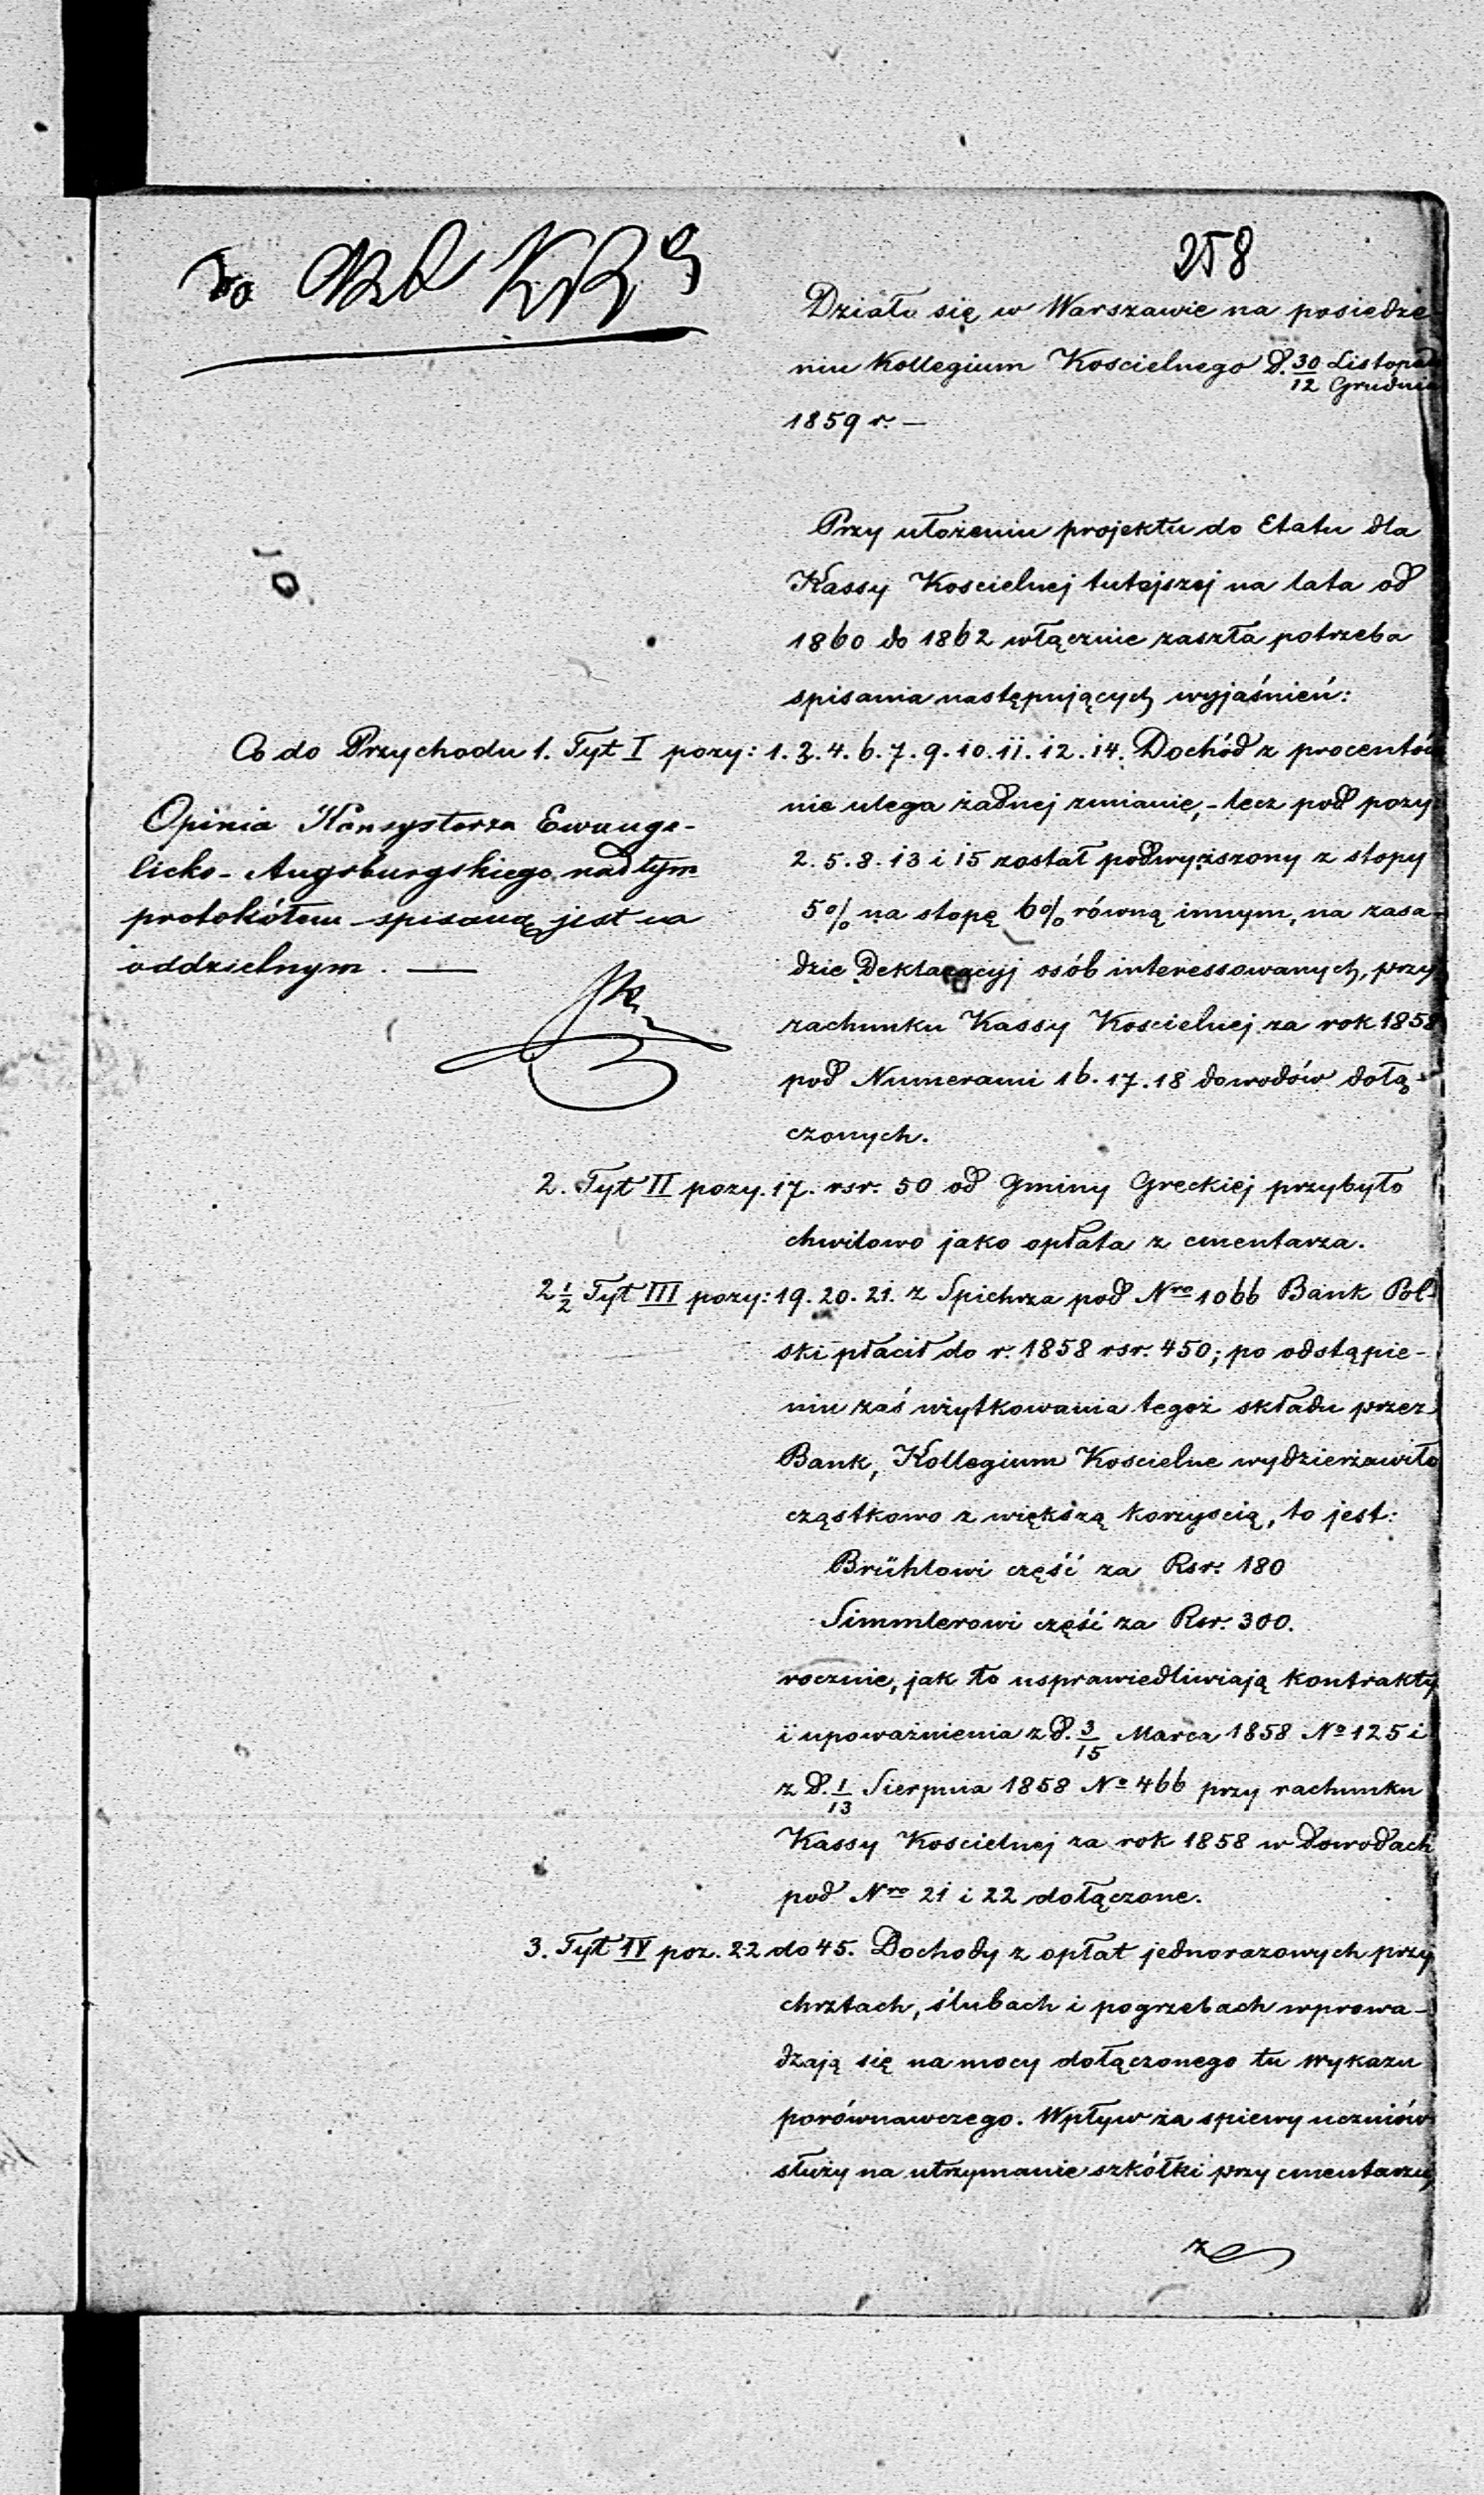 258
Działo się w Warszawie na posiedze-
niu Kollegium Koscielnego d. 30/12 Listopada Grudnia
1859 r. —
Przy ułożeniu projektu do Etatu dla
Kassy Koscielnej tutejszej na lata od
1860 do 1862 włącznie zaszła potrzeba
spisania następujących wyjaśnień:
Co do Przychodu 1. Tyt I pozy: 1. 3. 4. 6. 7. 9. 10. 11. 12. 14. Dochód z procentów
nie ulega żadnej zmianie, - lecz pod pozy
2. 5. 8. 13 i 15 został podwyższony z stopy
5% na stopę 6% równą innym, na zasa-
dzie Deklaracyj osób interessowanych, przy
rachunku Kassy Koscielnej za rok 1858
pod Numerami 16. 17. 18 dowodów dołą-
czonych.
Opinia Konsystorza Ewange-
licko - Augsburgskiego nad tym
protokółem spisaną jest na
oddzielnym. —
2. Tyt II pozy. 17. rsr. 50 od Gminy Greckiej przybyło
chwilowo jako opłata z cmentarza.
2 1/2 Tyt III pozy: 19. 20. 21. z Spichrza pod Nro 1066 Bank Pol-
ski płacił do r. 1858 rsr. 450; po odstąpie-
niu zaś użytkowania tegoż składu przez
Bank, Kollegium Koscielne wydzierżawiło
cząstkowo z większą korzyscią, to jest:
Brühlowi część za Rsr. 180
Simmlerowi część za Rsr. 300.
rocznie, jak to usprawiedliwiają kontrakty
i upoważnienia z d. 3/15 Marca 1858 No 125 i
z d. 1/13 Sierpnia 1858 No 466 przy rachunku
Kassy Koscielnej za rok 1858 w dowodach
pod Nro 21 i 22 dołączone.
3. Tyt IV poz. 22 do 45. Dochody z opłat jednorazowych przy
chrztach, ślubach i pogrzebach wprowa-
dzają się na mocy dołączonego tu wykazu
porównawczego. Wpływ za spiewy uczniów
służy na utrzymanie szkółki przy cmentarzu,